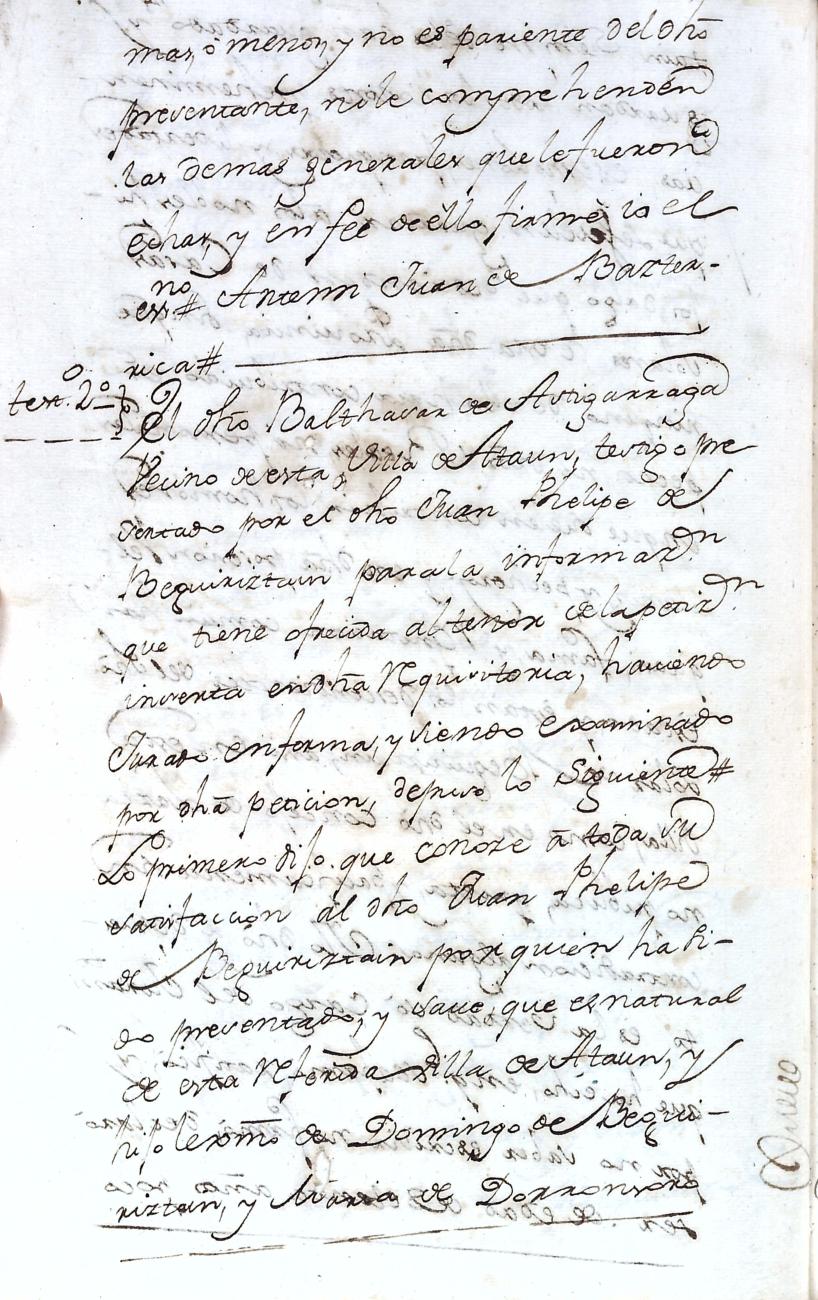 mas, o menos, y no es pariente del dho
presentante, ni le comprehenden
las demas generales que le fueron
echas, y en fee de ello firmé io el
essno# Antemi Juan de Bazter-
rica#.
test. 2º
El dho Balthasar de Astigarraga
Vecino de esta Villa de Ataun, testigo pre
sentado por el dho Juan Phelipe de
Beguiriztain para la informazon
que tiene ofrecida al tenor de la petizon
inserta en dha requisitoria, haviendo
Jurado en forma, y siendo examinado
por dha peticion, depuso lo siguiente#
Lo primero dijo que conoze à toda su
satisfaccion al dho Juan Phelipe
de Beguiriztain por quien ha si-
do presentado, y save, que es natural
de esta referida villa de Ataun, y
hijo lexmo de Domingo de Begui-
riztain, y Maria de Dorronsoro